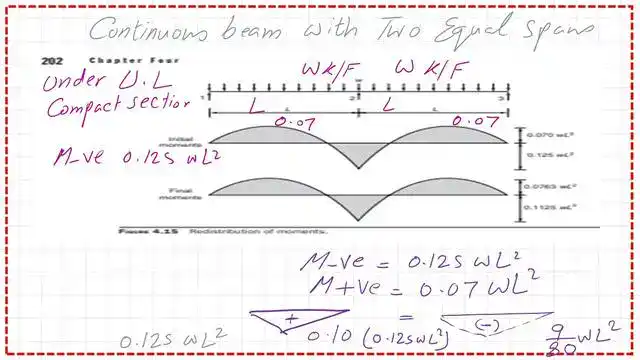 Continuous beam with Two Equal spans
202 Chapter Four
Under U.L
Compact section
W K/F W K/F
1 2 3
L L L L
0.07 0.07
Initial moments
0.070 wL²
0.125 wL²
M-ve 0.125 wL²
Final moments
0.0763 wL²
0.1125 wL²
FIGURE 4.15 Redistribution of moments.
M-ve = 0.125 wL²
M+ve = 0.07 wL²
+ = (-)
0.125 wL² 0.10 (0.125wL²) 9/80 wL²